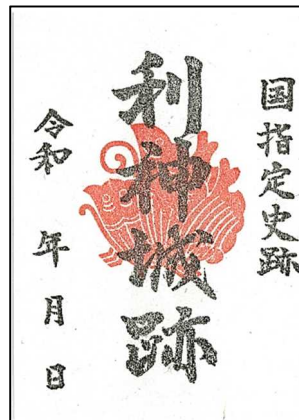 国指定史跡
利神城跡
令和　年　月　日